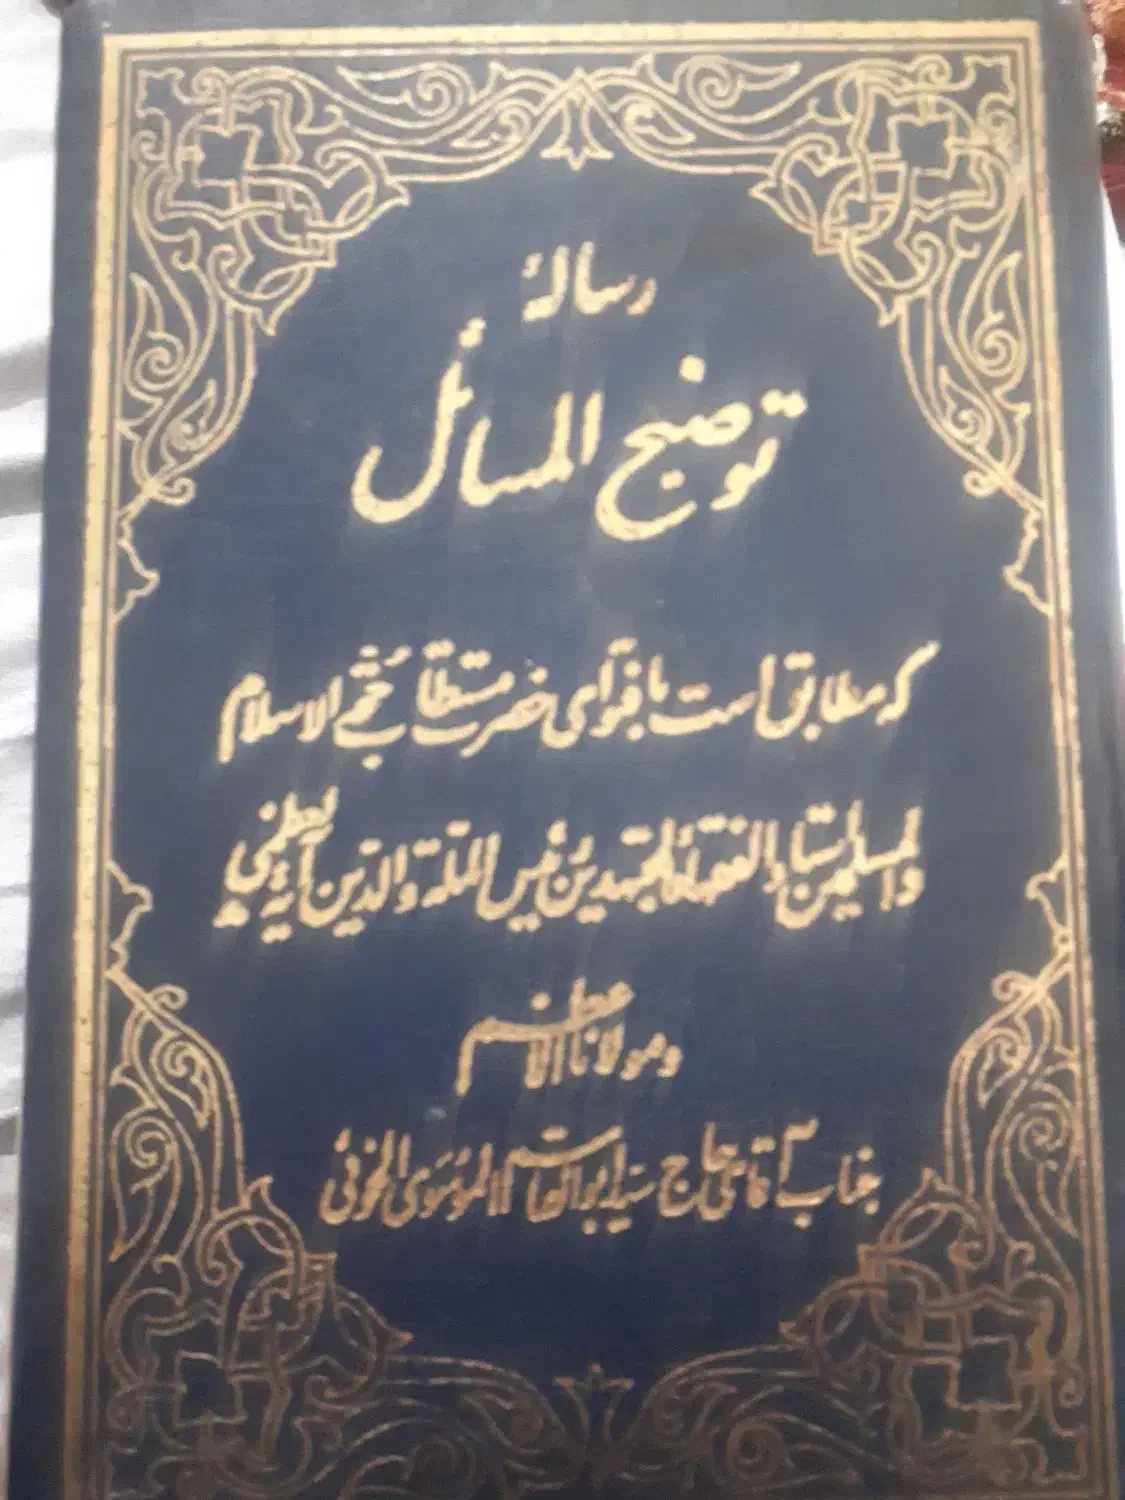 رسالهٔ
توضیح المسائل
که مطابق است با فتوای حضرت مستطاب حجة الاسلام
والمسلمین استاد الفقهاء والمجتهدین رئیس الملة والدین آیة الله العظمی
و مولانا الاعظم
جناب آقای حاج سید ابوالقاسم الموسوی الخوئی